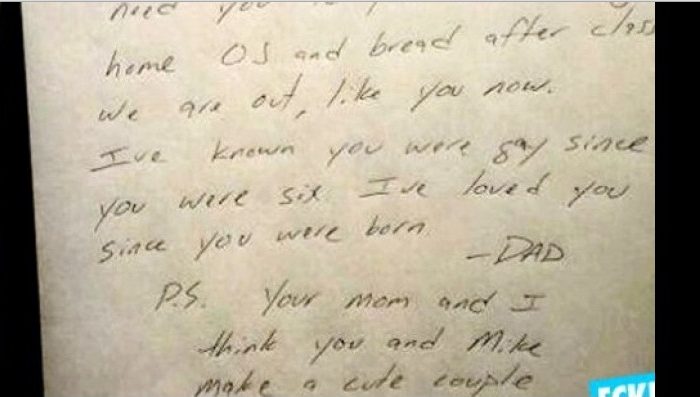 need you
home OJ and bread after class
we are out, like you now.
Ive known you were gay since
you were six Ive loved you
since you were born
-DAD
P.S. Your mom and I
think you and Mike
make a cute couple